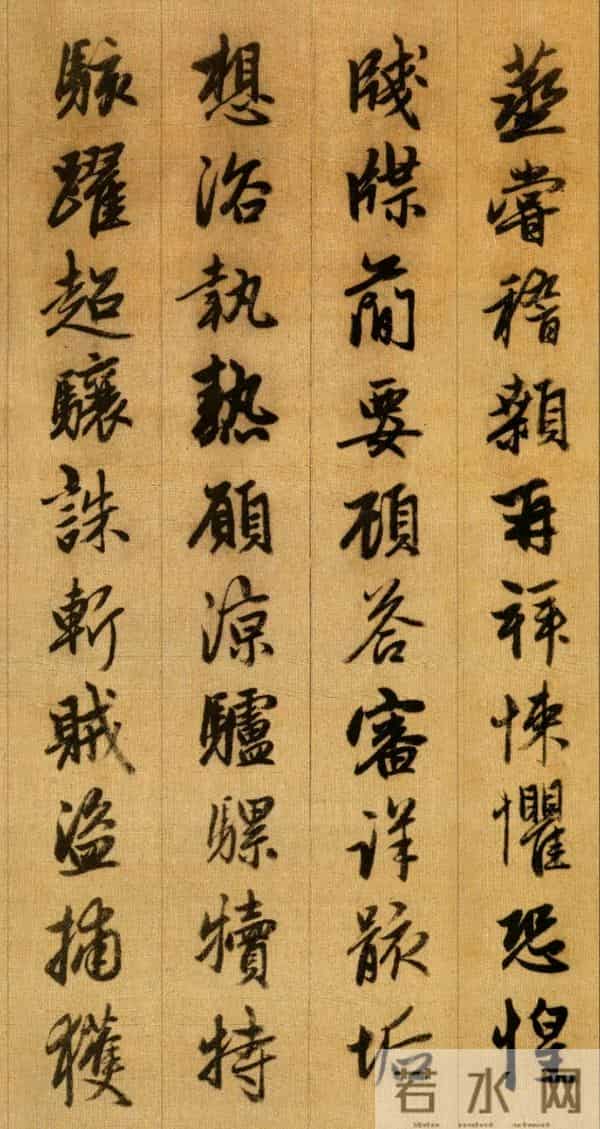 蒸嘗稽顙再拜悚懼恐惶
牋牒簡要顧答審詳骸垢
想浴執熱願涼驢騾犢特
駭躍超驤誅斬賊盜捕獲
若水网